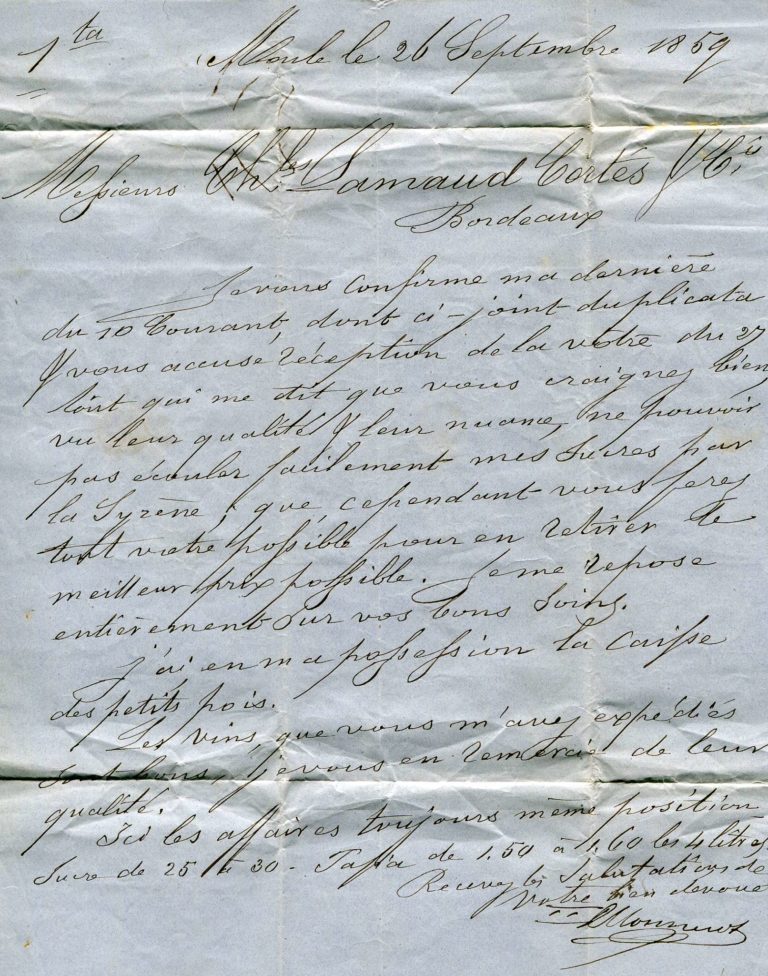 1ta Moule le 26 Septembre 1859
Messieurs Ch.les Lamaud Cortès & Cie
Bordeaux
Je vous confirme ma dernière
du 10 Courant, dont ci-joint duplicata
& vous accuse réception de la votre du 27
août qui me dit que vous craignez bien,
vu leur qualité & leur nuance, ne pouvoir
pas écouler facilement mes sucres par
la Syrène; que, cependant vous ferez
tout votre possible pour en retirer le
meilleur prix possible. Je me repose
entièrement sur vos bons soins.
j'ai en ma possession la caisse
des petits pois.
Les vins que vous m'avez expédiés
sont bons, je vous en remercie de leur
qualité.
Ici les affaires toujours même position
Sucre de 25 à 30 - Tafia de 1.50 à 1.60 les 4 litres
Recevez les Salutations de
Votre bien dévoué